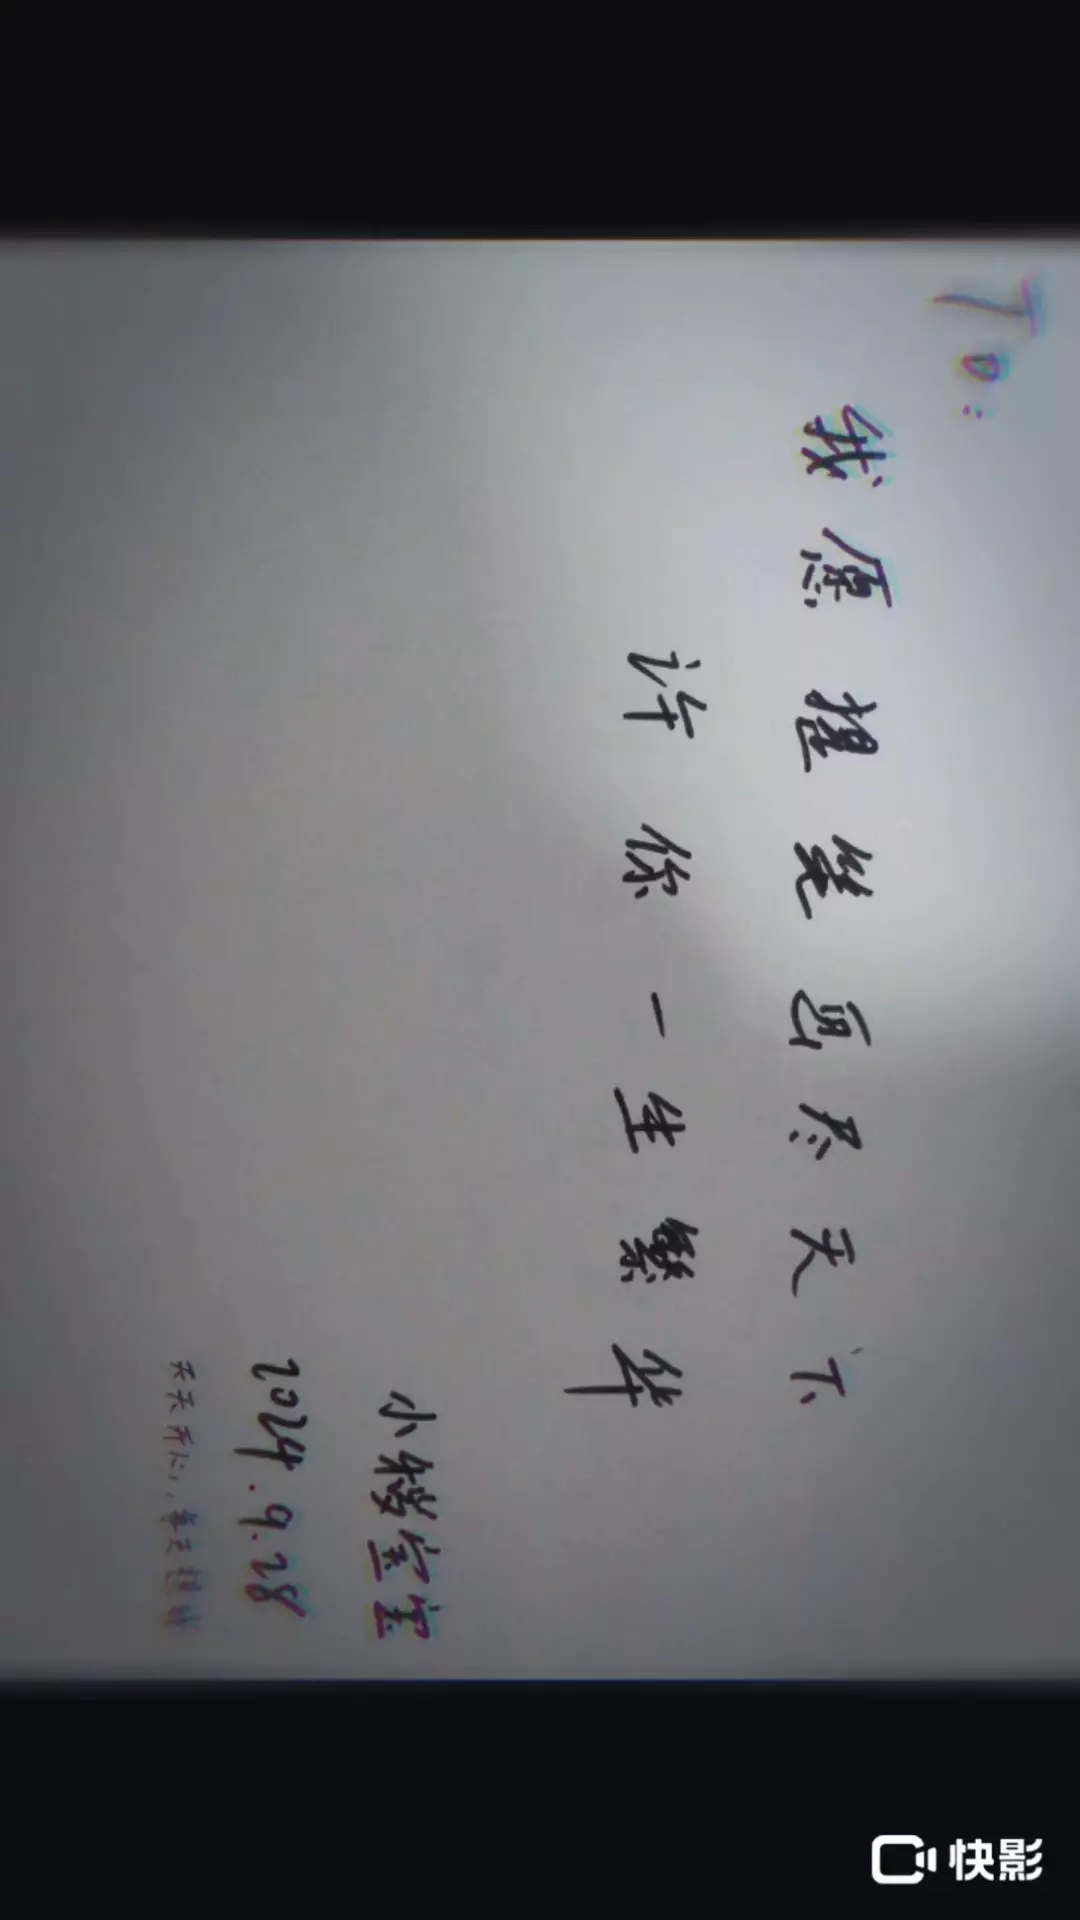 To:
我愿提笔画尽天下
许你一生繁华
小糖宝宝
2024.9.28
天天开心,每天
快影